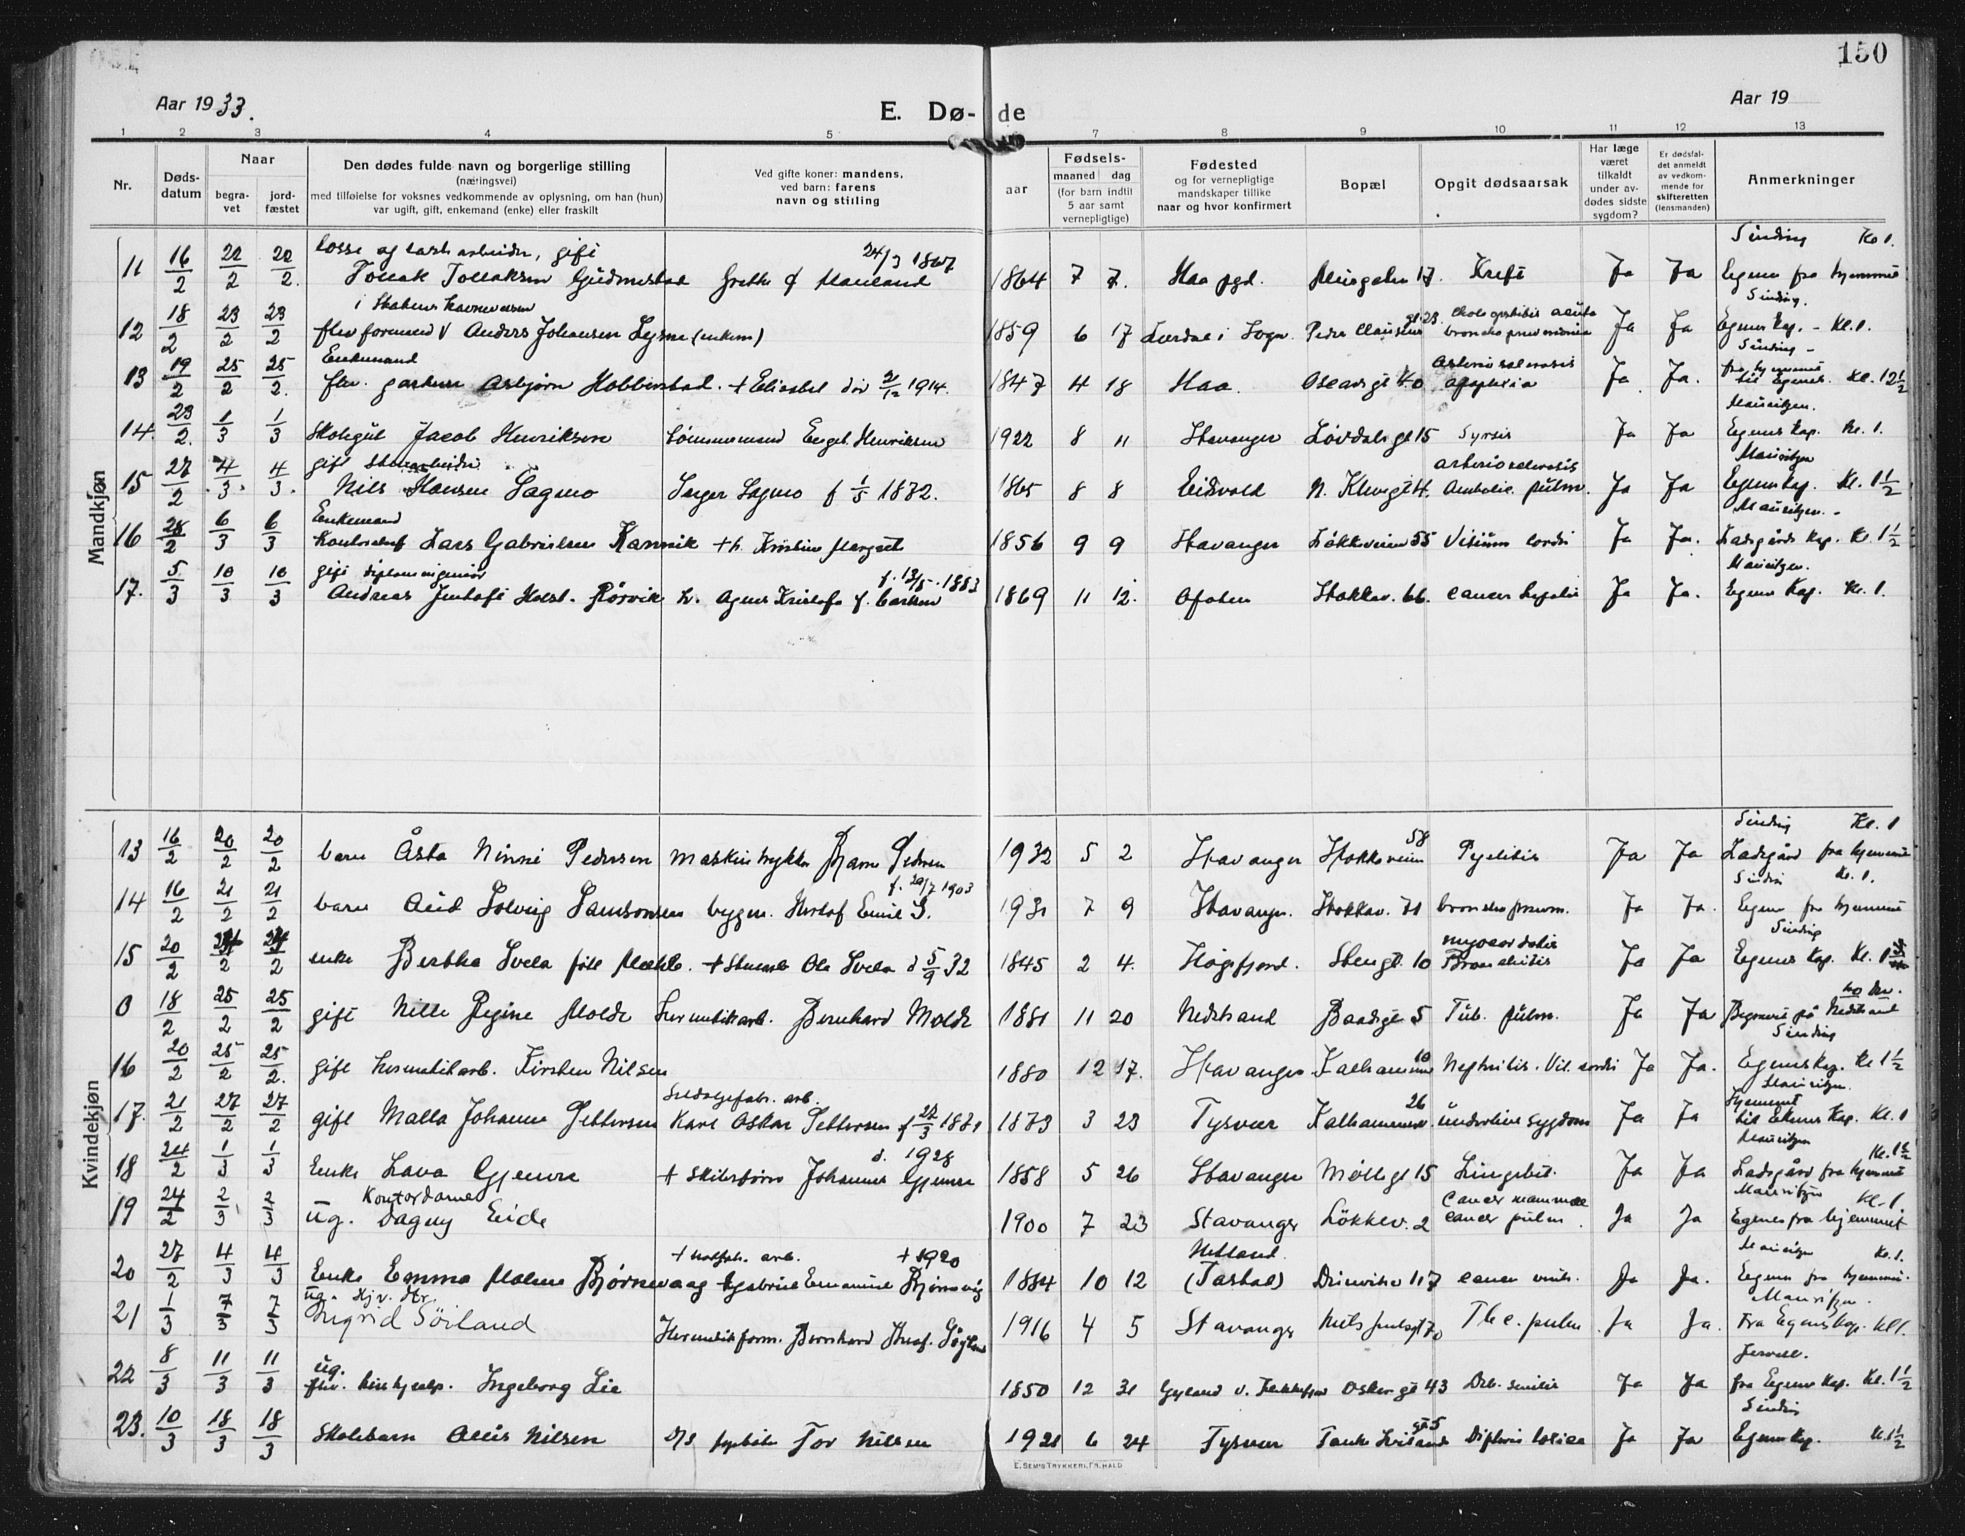 150
Aar 1933.
E. Dø- de
Aar 19
1 2 3 4 5 7 8 9 10 11 12 13
Nr.
Døds-
datum
Naar
begra-
vet
jord-
fæstet
Den dødes fulde navn og borgerlige stilling
(næringsvei)
med tilføielse for voksnes vedkommende av oplysning, om han (hun)
var ugift, gift, enkemand (enke) eller fraskilt
Ved gifte koner: mandens,
ved barn: farens
navn og stilling
aar
Fødsels-
maaned dag
(for barn indtil
5 aar samt
vernepligtige)
Fødested
og for vernepligtige
mandskaper tillike
naar og hvor konfirmert
Bopæl
Opgit dødsaarsak
Har læge
været
tilkaldt
under av-
dødes sidste
sygdom?
Er dødsfal-
det anmeldt
av vedkom-
mende for
skifteretten
(lensmanden)
Anmerkninger
Mandkjøn
losse og lastearbeider, gift 24/3 1867 Sinding Kl 1.
11 16/2 22/2 22/2. Tollak Tollaksen Gudmestad Grethe f Mauland 1864 7 7. Haa pgd. 17. Kreft Ja Ja Egenes fra hjemmet
i Statens havnevesen Sinding.
12 18/2 23/2 23/2 fhv formand V Anders Johansen Lysne (enkem) 1859 6 17 Lærdal i Sogn Peder Claus 23 acuta bronchopneumonia Ja Ja Egenes Kap. - Kl. 1.
Enkemand Sinding -
13 19/2 25/2 25/2. fhv. gartner Asbjørn Hobberstad. + Elisabet død 2/12 1914. 1847 4 18 Haa. Oscarsgt 40 apoplexia Ja Ja. fra hjemmet til Egenes. Kl. 12 1/2
Mauritzen.
14. 23/2. 1/3 1/3 Skolegut Jacob Henriksen tømmermand Engel Henriksen 1922 8 11 Stavanger Løvdalsgt 15 Ja Ja Egenes Kap. Kl. 1.
gift Mauritzen
15 27/2 4/3. 4/3. Nils Hansen Sagmo Inger Sagmo f 1/5 1872. 1865 8 8 Eidsvold N. Kleivgt 4. arteriosclerosis Embolie. pulm. Ja Ja Egenes Kap. Kl. 1 1/2
Enkemand Mauritzen. -
16 28/2 6/3 6/3 Kontorchef Lars Gabrielsen Kannik + h. Kristine Margret 1856 9 9 Stavanger Løkkeveien 55 Vitium cordis Ja Ja. Ladegårds Kap. Kl 1 1/2
gift diplomingeniør f. 13/5. 1883 Mauritzen.
17. 5/3 10/3 10/3 Andreas Jentoft Holst. Rørvik h. Agnes Kristofa f. Carlsen 1869 11 12. Ofoten Stokkav. 66. cancer hepatis Ja Ja. Egenes Kap. Kl. 1.
Kvindekjøn
Sinding Kl. 1
13 16/2 20/2 20/2 barn Åsta Ninni Pedersen maskintrykker Bjarne Pedersen 1932 5 2 Stavanger Stokkaveien 58 Pyelitis Ja Ja Ladegård fra hjemmet
f. 20/7 1903 Sinding Kl. 1.
14 16/2 21/2 21/2 barn Aud Solveig Samsonsen bygm. Herlof Emil S. 1931 7 9 Stavanger. Stokkav. 71 bronchopneum. Ja Ja. Egenes fra hjemmet
Sinding
15 20/2 24/2 24/2 enke Bertha Svela født + Ole Svela d 5/9 32 1845 2 4. Høgsfjord. Stengt. 10 Bronchitis Ja Ja Egenes Kap. Kl. 1
0 18/2 25/2 25/2 gift Nille Regine Molde hermetikarb. Bernhard Molde 1881 11 20 Nedstrand Baadsgt 5 Tub. pulm. Ja Ja Begravet på Nedstrand
Sinding
16 20/2 25/2 25/2. gift hermetikarb. Kirsten Nilsen 1880 12 17. Stavanger Kalhammerv 10 Nephritis. Vit. cordis Ja Ja. Egenes Kap. Kl 1 1/2
Mauritzen.
17. 21/2 27/2 27/2 gift Malla Johanne Pettersen Karl Oskar Pettersen f 22/3 1871 1873 3 23 Tysvær Kalhammerv. 26 underlivssygdom Ja Ja hjemmet til Egenes Kap. Kl. 1
d. 1928 Mauritzen Kl. 1 1/2
18 24/2 1/3 1/3 Enke Lava Gjemre + Skibsfører Johannes Gjemre 1858 5 26 Stavanger Møllegt 15 Lungebet. Ja Ja Ladegård fra hjemmet
Kontordame Mauritzen Kl. 1.
19 24/2 2/3 2/3 ug. Dagny Eide 1900 7 23 Stavanger Løkkev. 2 Cancer mammae cancer pulm. Ja Ja Egenes fra hjemmet
+ 1920 Mauritzen Kl. 1.
20 27/2 4/3 4/3 Enke Emma Malene Bjørnevaag + Gabriel Emanuel Bjørnevåg 1884 10 12 Hetland (Tasta) 117 cancer ventr. Ja Ja. Egenes fra hjemmet.
ug. Hjv. dtr. Mauritzen.
21 1/3 7/3 7/3 Ingrid Söiland Hermetikform. Bernhard 1916 4 5 Stavanger Nils Juelsgt 70 Tbc. pulm. Ja Ja. Fra Egenes Kap. Kl 1.
ug.
22 8/3 11/3 11/3 fhv. Ingeborg Lie 1850 12 31 Gyland v. Flekkefjord Oskarsgt 43 Deb. senilis Ja Ja fra Egenes Kap. Kl. 1 1/2
Sinding
23. 10/3 18/3 18/3 Skolebarn Alis Nilsen Tor Nilsen 1921 6 24 Tysvær Tanke Svilands gt 5 Difteri Ja Ja Egenes Kap. Kl. 1 1/2
E. SEM'S TRYKKERI, FR. HALD